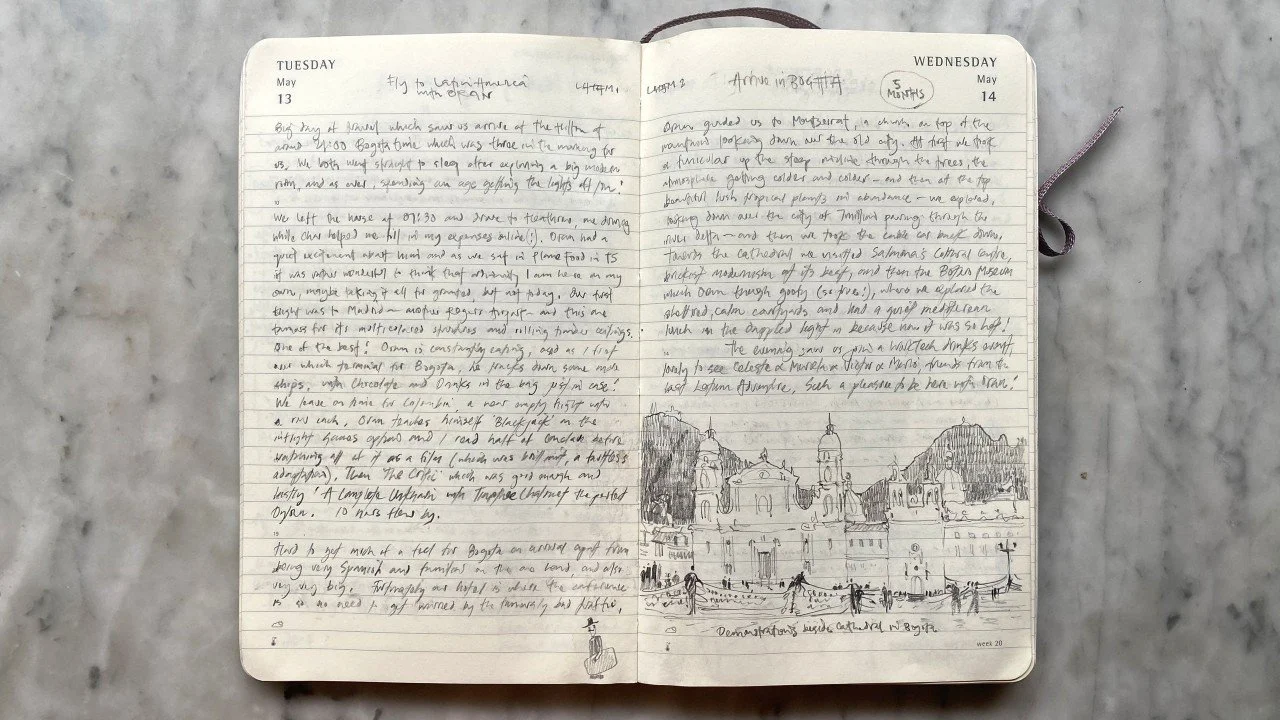 TUESDAY
May
13
Fly to Latin America
with ORAN
LATAM 1
Big day of travel which saw us arrive at the Hilton at
around 21:00 Bogota time which was three in the morning for
us. We both went straight to sleep after exploring a big modern
room, and as ever, spending an age getting the lights off /on!
We left the house at 07:30 and drove to Heathrow, me driving
while Char helped me fill in my expenses online(!). Oran had a
quiet excitement about him and as we sat in Plane Food in T5
it was rather wonderful to think that ordinarily I am here on my
own, maybe taking it all for granted, but not today. Our first
flight was to Madrid — another Rogers airport — and this one
famous for its multicoloured structures and rolling timber ceilings.
One of the best! Oran is constantly eating, and as I first
out which terminal for Bogota, he tracks down some more
chips, with chocolate and Drinks in the bag just in case!
We leave on time for Colombia, a near empty flight with
a row each, Oran teaches himself 'Blackjack' on the
inflight games and I read half of Conclave before
watching all of it as a film (which was brilliant, a faithful
adaptation). Then 'The Critic' which was good and
lastly 'A Complete Unknown with Timothée Chalamet the perfect
Dylan. 10 hours flew by.
Hard to get much of a feel for Bogota on arrival apart from
being very Spanish and on the one hand, and also
very very big. Fortunately our hotel is where the conference
is so no need to get worried by the famously bad traffic.
WEDNESDAY
May
14
LATAM 2
Arrive in BOGOTA
5
MONTHS
Oran guided us to Montserrat, a church on top of the
mountains looking down over the old city. At first we took
a funicular up the steep incline through the trees, the
atmosphere getting colder and colder — and then at the top
beautiful with tropical plants in abundance — we explored,
looking down over the city of 7 million through the
— and then we took the cable car back down,
towards the cathedral we visited Salmona's Cultural Centre,
brickist modernism at its best, and then the Botero Museum
which Oran thought goofy (so true!), where we explored the
sheltered, calm courtyards and had a quiet mediterranean
lunch in the dappled light because now it was so hot!
The evening saw us join a WORKTECH drinks event,
lovely to see Celeste & & Victor & Mario, friends from the
last Latam Adventure. Such a pleasure to be here with Oran!
Demonstrations beside Cathedral in Bogota
week 20